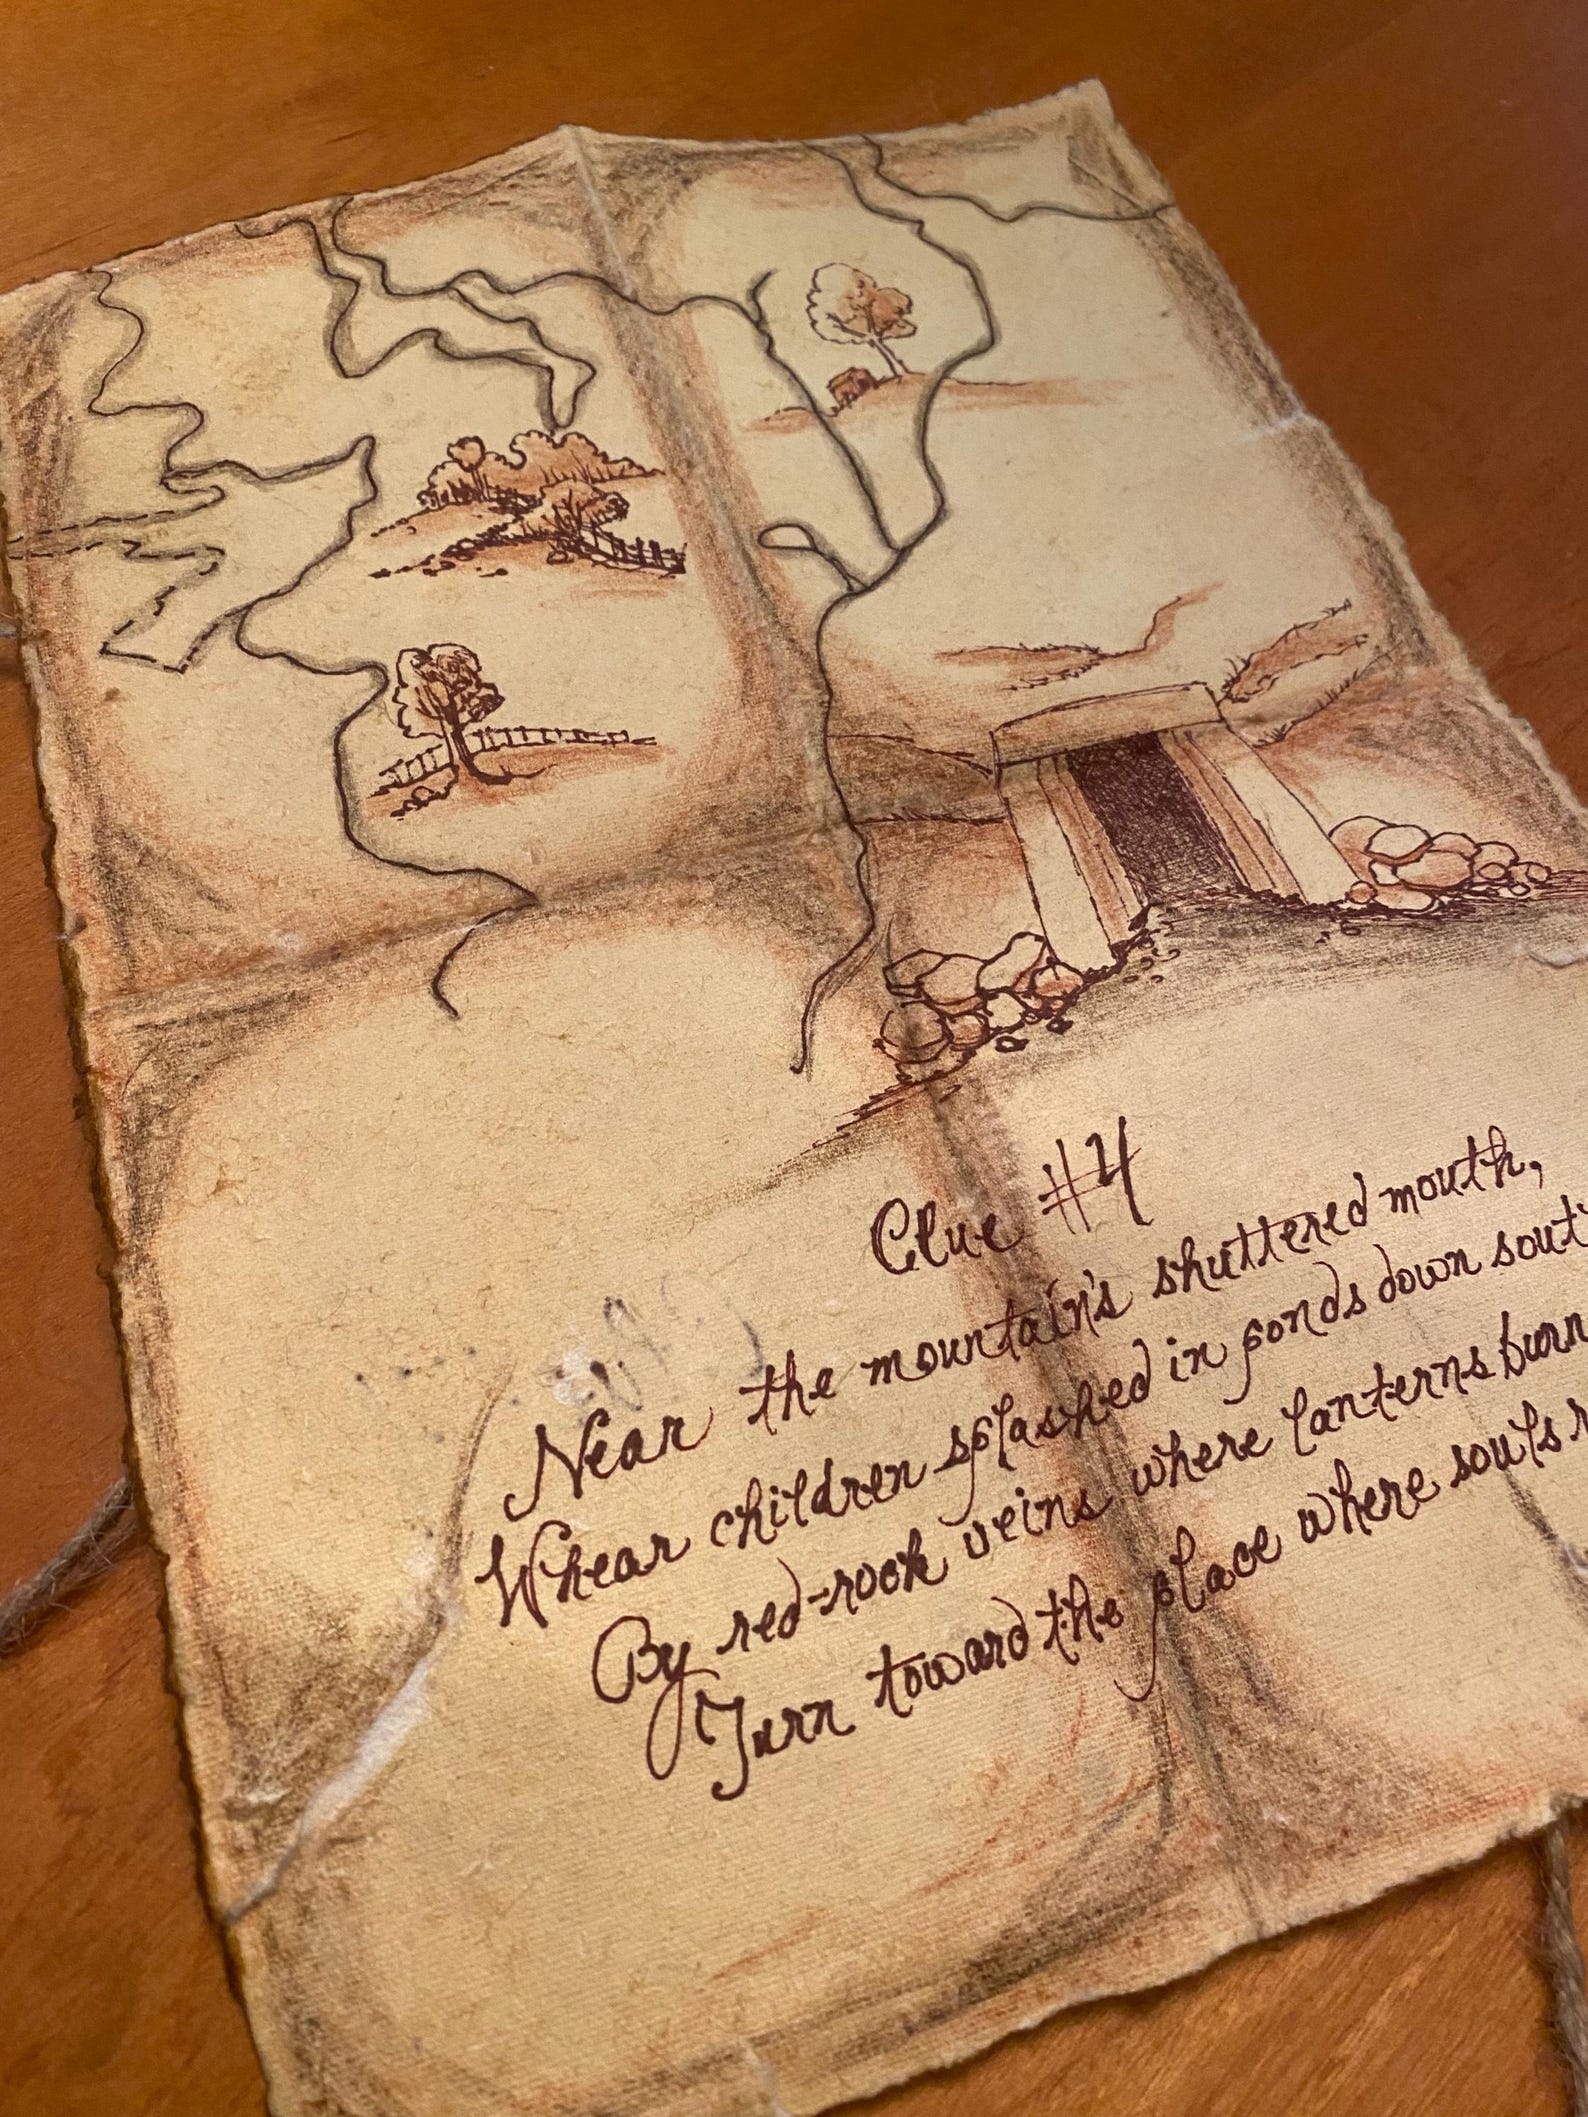 Clue #4
Near the mountain's shuttered mouth,
Whear children splashed in ponds down
By red-rock veins where lanterns burn
Turn toward the place where souls